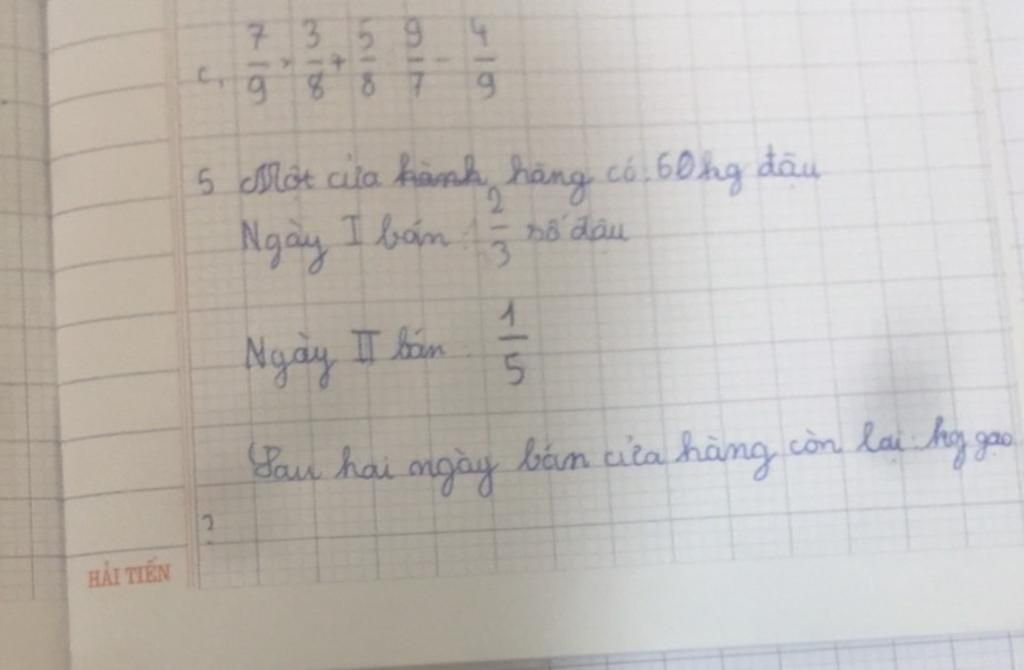 c, 7/9 × 3/8 + 5/8 : 9/7 - 4/9
5 Một cửa hành hàng có 60kg đậu
Ngày I bán : 2/3 số đậu
Ngày II bán 1/5
Sau hai ngày bán cửa hàng còn lại : kg gạo
?
HẢI TIẾN